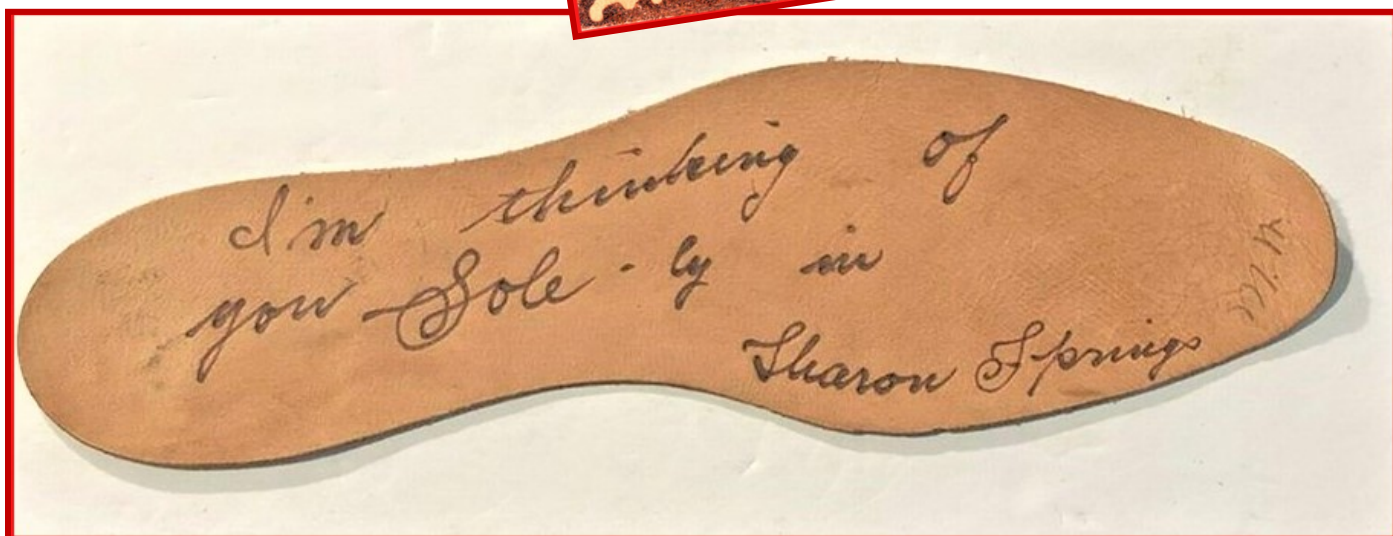 I'm thinking of
you Sole-ly in
Sharon Springs